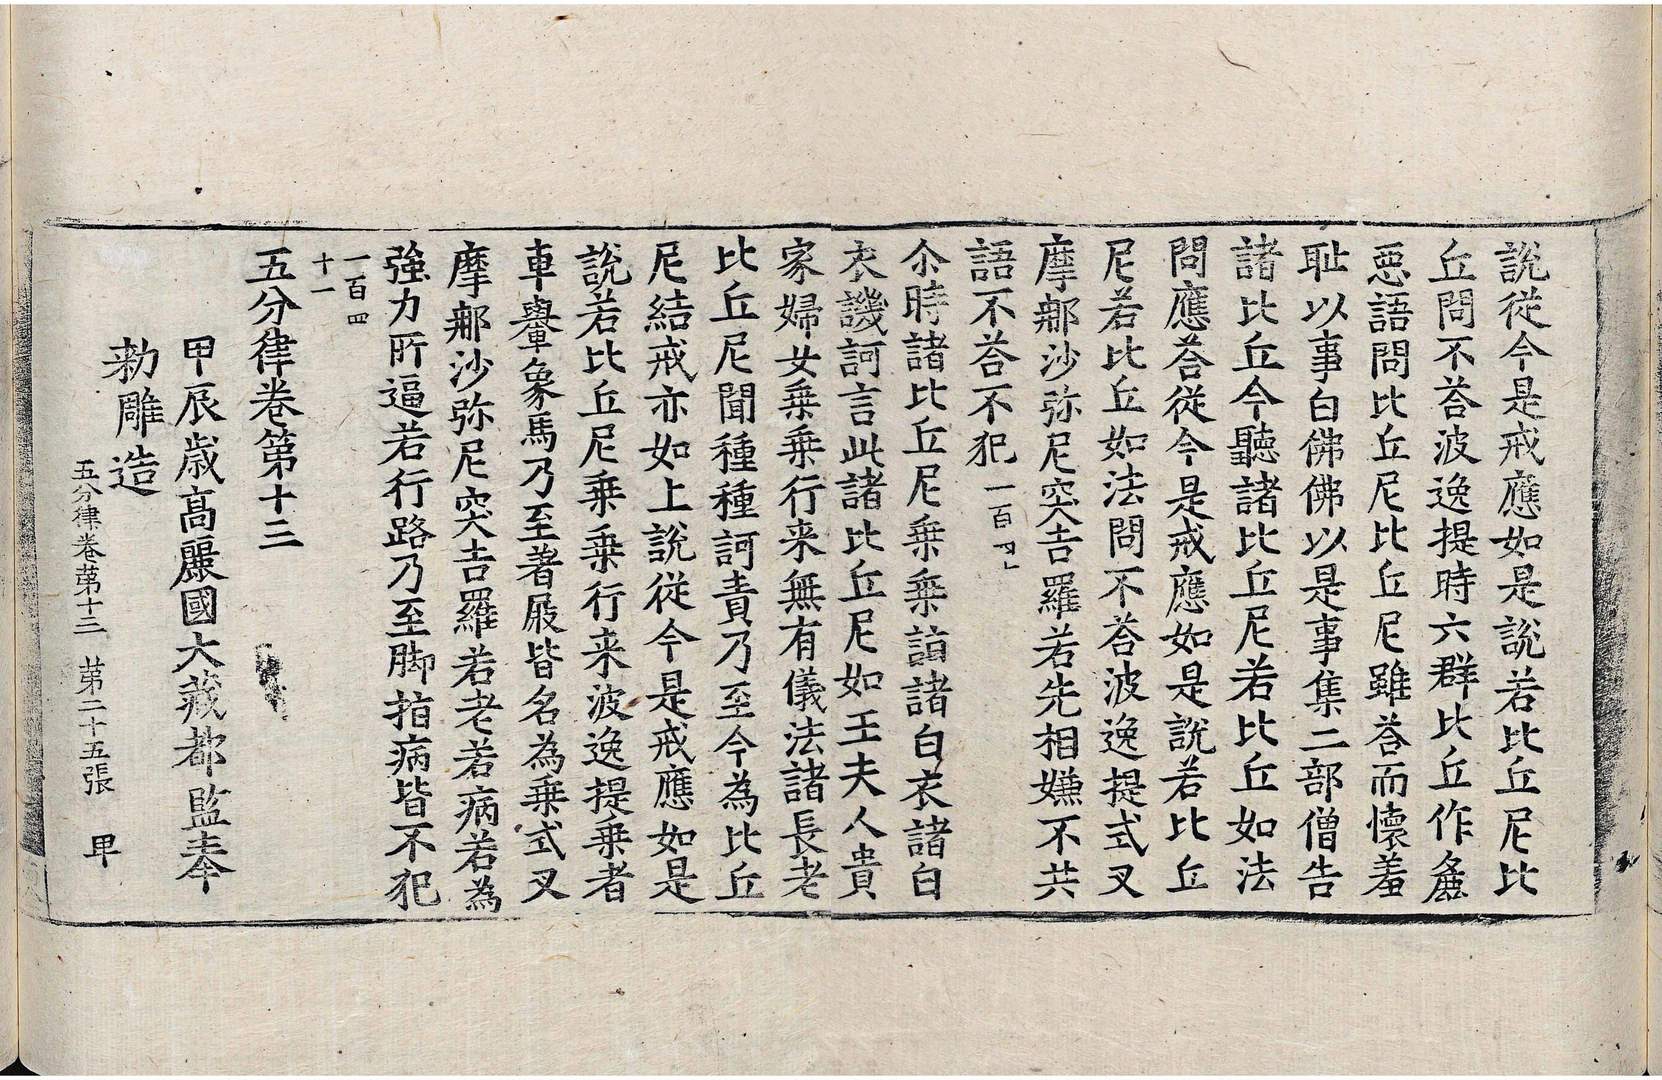 說從今是戒應如是說若比丘尼比
丘問不荅波逸提時六群比丘作麁
惡語問比丘尼比丘尼雖荅而懷羞
耻以事白佛佛以是事集二部僧告
諸比丘今聽諸比丘尼若比丘如法
問應荅從今是戒應如是說若比丘
尼若比丘如法問不荅波逸提式叉
摩那沙弥尼突吉羅若先相嫌不共
語不荅不犯一百四
尒時諸比丘尼乗乗諠諸白衣諸白
衣譏訶言此諸比丘尼如王夫人貴
家婦女乗乗行来無有儀法諸長老
比丘尼聞種種訶責乃至今為比丘
尼結戒亦如上說從今是戒應如是
說若比丘尼乗乗行来波逸提乗者
車轝象馬乃至著屐皆名為乗式叉
摩那沙弥尼突吉羅若老若病若為
強力所逼若行路乃至脚指病皆不犯
一百四
十一
五分律卷第十三
甲辰歲高麗國大藏都監奉
勑雕造
五分律卷第十三 第二十五張 甲